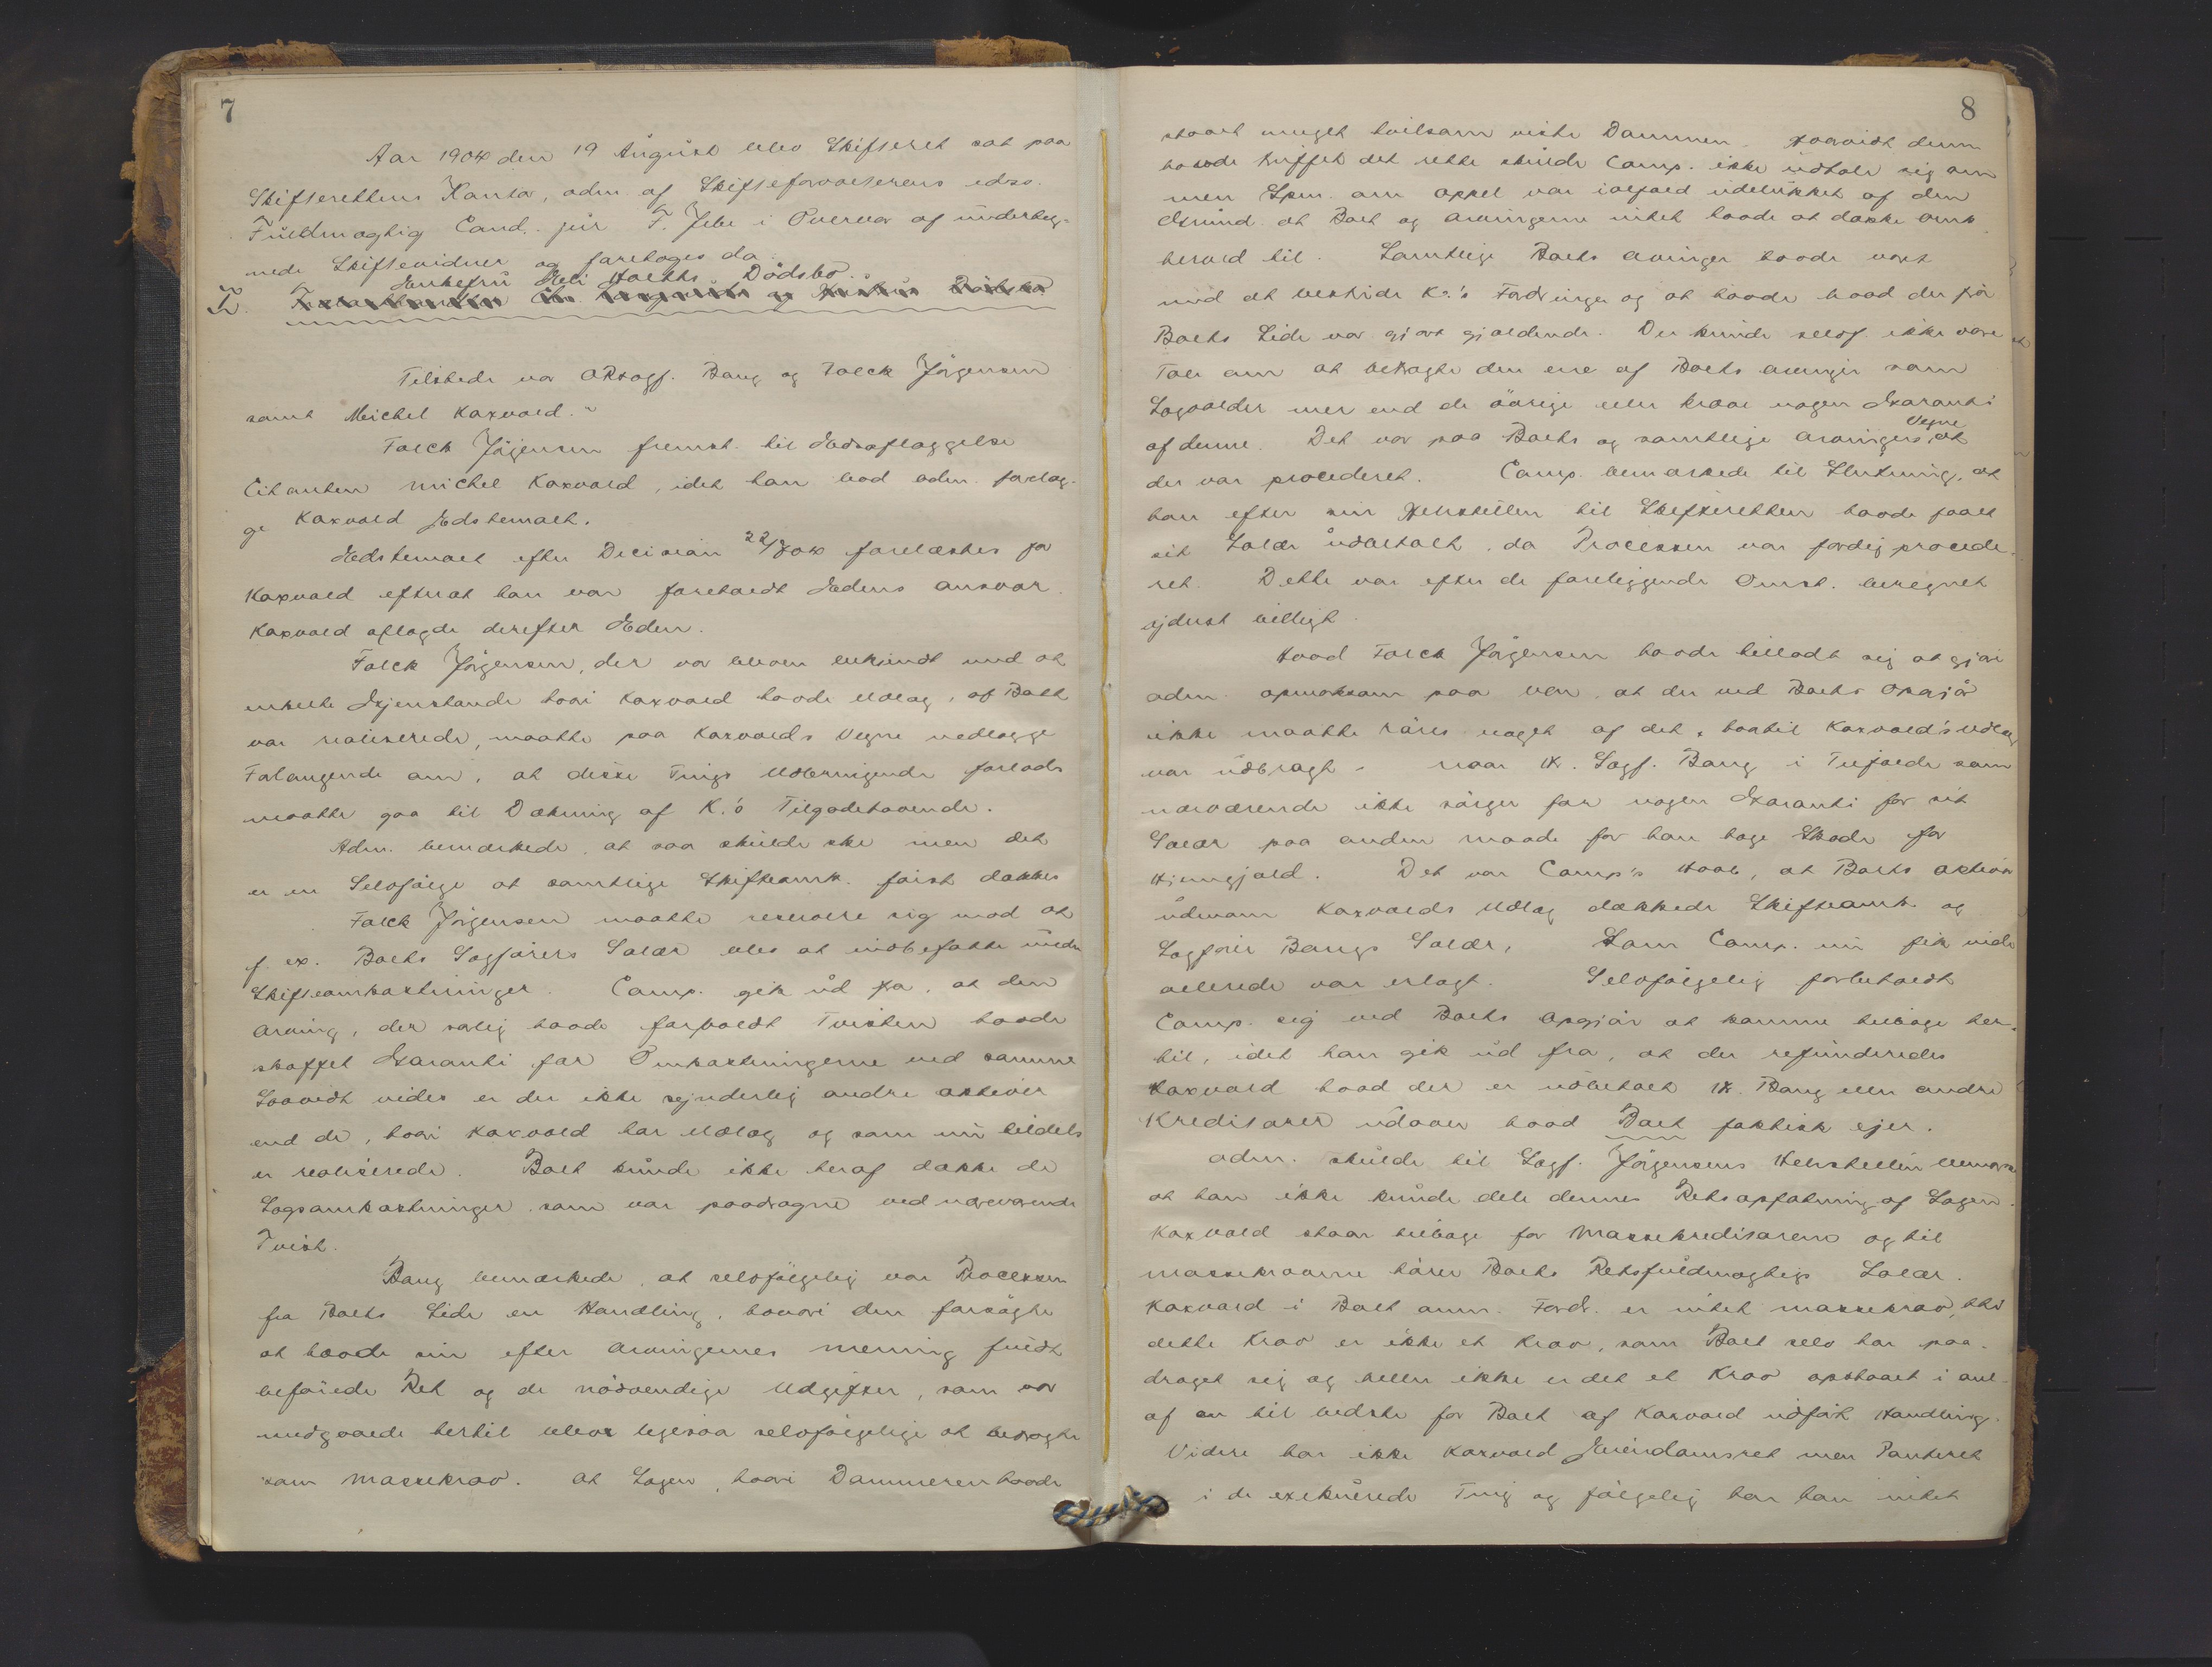 7
Aar 1904 den 19 August blev Skifteret sat paa
Skifterettens Kontor, adm. af Skifteforvalterens edsv.
Fuldmægtig Cand. jur F. Jebe i Overvær af underteg-
nede Skiftevidner og foretoges da:
Enkefru Holths Dødsbo.
Tilstede var ORsagf. Bang og Falck Jørgensen
samt Michel Kaxvald.
Falck Jørgensen fremst. til Edsaflæggelse
Citanten Michel Kaxvald, idet han bad adm. forelæg-
ge Kaxvald Edstemaet.
Edstemaet efter Decision 22/7 04 forelæstes for
Kaxvald efterat han var foreholdt Edens ansvar.
Kaxvald aflagde derefter Eden.
Falck Jørgensen, der var bleven bekjendt med at
enkelte Gjenstande hvori Kaxvald havde Udlæg, af Boet
var realiserede, maatte paa Kaxvalds Vegne nedlægge
Forlangende om, at disse Tings Udbringende forlods
maatte gaa til Dækning af K.'s Tilgodehavende.
Adm. bemærkede, at saa skulde ske men det
er en Selvfølge at samtlige Skifteomk. først dækkes
Falck Jørgensen maatte reservere sig mod at
f. ex. Boets Sagførers Salær blev at indbefatte under
Skifteomkostninger. Comp. gik ud fra, at den
Arving, der særlig havde forvoldt Tvisten havde
skaffet Garanti for Omkostningerne ved samme
Saavidt vides er der ikke synderlig andre aktiver
end de, hvori Kaxvald har Udlæg og som nu tildels
er realiserede. Boet kunde ikke heraf dække de
Sagsomkostninger som var paadragne ved nærværende
Tvist.
Bang bemærkede, at selvfølgelig var Processen
fra Boets Side en Handling, hvori den forsøgte
at hævde sin efter Arvingernes mening fuldt
beføiede Ret og de nødvendige Udgifter, som var
medgaaede hertil blev ligesaa selvfølgelige at betragte
som Massekrav. At Sagen, hvori Dommeren havde
8
staaet meget tvilsom viste Dommen. Hvorvidt denne
havde truffet det rette skulde Comp. ikke udtale sig om
men Spm. om Appel var ialfald udelukket af den
Grund at Boet og Arvingerne intet havde at dække Omk.
herved til. Samtlige Boets Arvinger havde været
med at bestride K.'s Fordringer og at hævde hvad der fra
Boets Side var gjort gjældende. Der kunde selvf. ikke være
Tale om at betragte den ene af Boets Arvinger som
Sagvolder mer end de øvrige eller kræve nogen Garanti
af denne. Det var paa Boets og samtlige Arvingers Vegne at
der var procederet. Comp. bemærkede til Slutning, at
han efter sin Henstillen til Skifteretten havde faaet
sit Salær udbetalt, da Processen var færdig procede-
ret. Dette var efter de foreliggende Omst. beregnet
yderst billigt.
Hvad Falck Jørgensen havde tilladt sig at gjøre
adm. opmærksom paa var, at der ved Boets Opgjør
ikke maatte røres noget af det, hvortil Kaxvald's Udlæg
var udbragt. Naar Hr. Sagf. Bang i Tilfælde som
nærværende ikke sørger for nogen Garanti for sit
Salær paa anden maade for han tage Skade for
Hjemgjæld. Det var Comp's Haab, at Boets aktiva
udenom Kaxvalds Udlæg dækkede Skifteomk. og
Sagfører Bangs Salær, som Comp. nu fik vide
allerede var erlagt. Selvfølgelig forbeholdt
Comp. sig ved Boets Opgjør at komme tilbage her-
til, idet han gik ud fra, at der refunderedes
Kaxvald hvad der er udbetalt Hr. Bang eller andre
Kreditorer udover hvad Boet faktisk ejer.
Adm. skulde til Sagf. Jørgensens Henstillen bemærke
at han ikke kunde dele dennes Retsopfatning af Sagen.
Kaxvald staar tilbage for Massekreditorerne og til
massekravene hører Boets Retsfuldmægtigs Salær.
Kaxvald i Boet anm. Fordr. er intet massekrav, thi
dette Krav er ikke et Krav, som Boet selv har paa-
draget sig og heller ikke er det et Krav opstaaet i anl.
af en til bedste for Boet af Kaxvald udført Handling.
Videre har ikke Kaxvald Eiendomsret men Panteret
i de exekverede Ting og følgelig har han intet